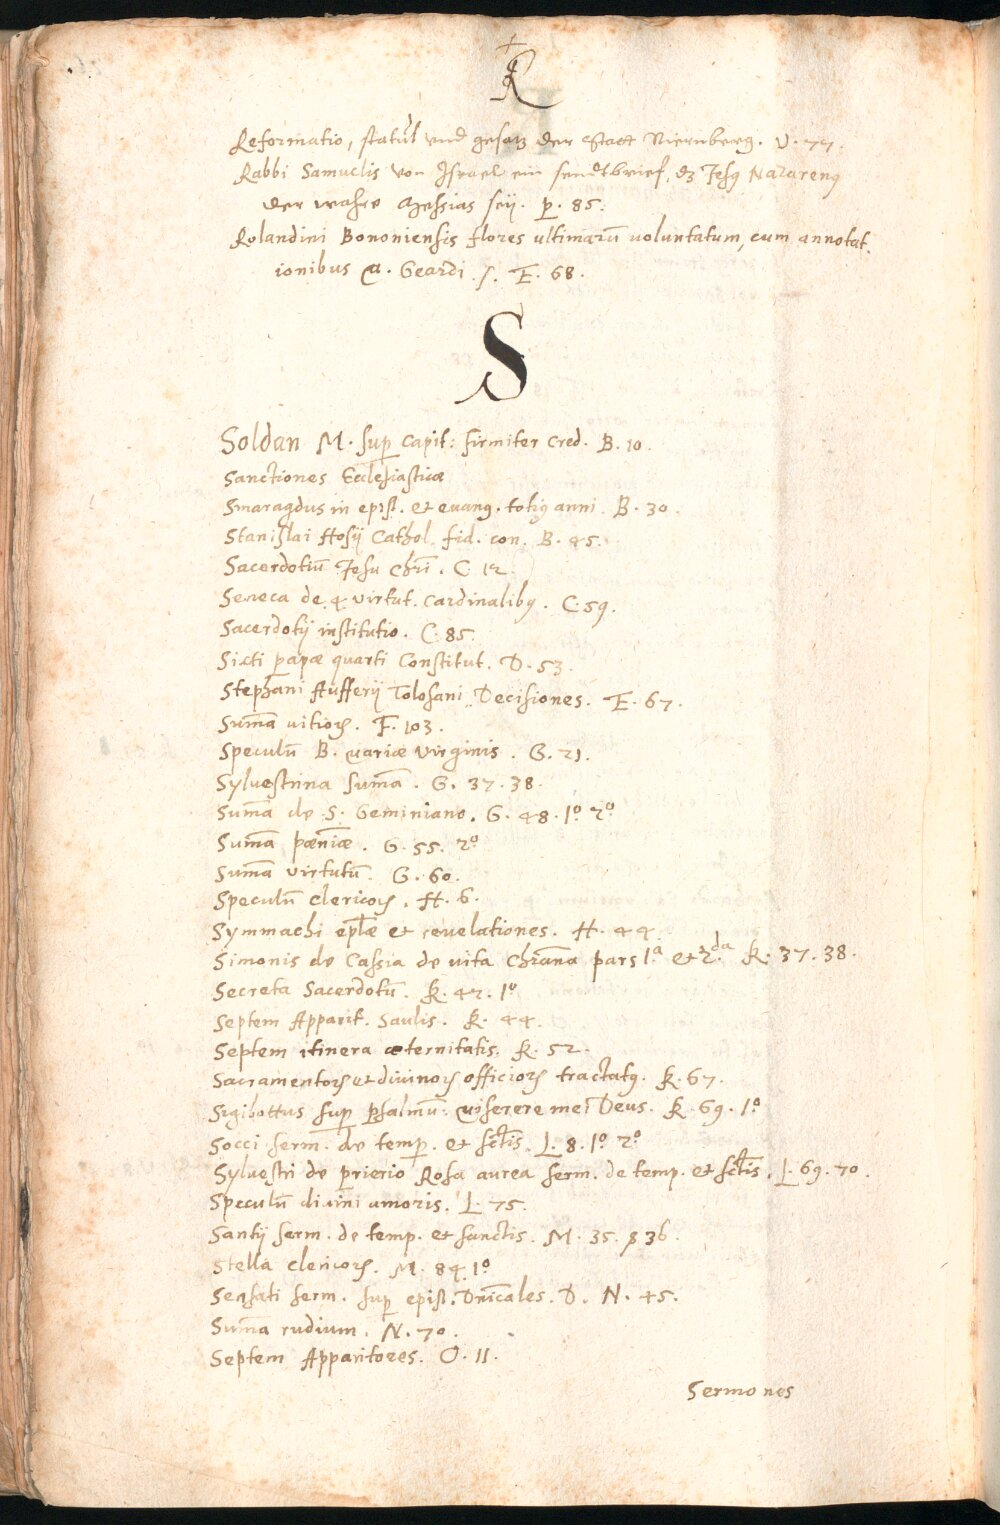 R
Reformatio, statut und gesatz der Statt Niernberg. V. 77.
Rabbi Samuelis von Israel ein sendtbrief, dz Jesꝯ Nazarenꝯ
der wahre Messias seÿ. P. 85.
Rolandini Bononiensis flores ultimarū voluntatum, cum annotat,
ionibus A. Geardi. E. 68.
S
Soldan M. sup Capit: firmiter Cred. B. 10.
Sanctiones Ecclesiasticæ
Smaragdus in epist. et evang. totiꝯ anni. B. 30.
Stanislai Hosÿ Cathol. fid. con. B. 45.
Sacerdotiū Jesu Chri̅. C. 12.
Seneca de 4 virtut. Cardinalibꝯ. C. 59.
Sacerdotÿ institutio. C. 85.
Sixti papæ quarti Constitut. D. 53.
Stephani Aufferÿ Tolosani Decisiones. E. 67.
Sum̄a vitioꝝ. F. 103.
Speculū B. Mariæ Virginis. G. 21.
Sylvestrina sum̄a. G. 37. 38.
Sum̄a de S. Geminiano. G. 48. 1º 2º
Sum̄a pœn̄iæ. G. 55. 2º
Sum̄a virtutū. G. 60.
Speculū clericoꝝ. H. 6.
Symmachi ep̄læ et revelationes. H. 44.
Simonis de Cassia de vita Chr̄ana pars 1ª et 2.da K. 37. 38.
Secreta Sacerdotū. K. 42. 1º
Septem Apparit. Saulis. K. 44.
Septem itinera æternitatis. K. 52.
Sacramentoꝝ et divinoꝝ officioꝝ tractatꝯ. K. 67.
Sigibottus sup Psalmū: Miserere mei Deus. K. 69. 1º
Socci serm. de temp. et sc̄tis. L. 8. 1º 2º
Sylvestri de prierio Rosa aurea serm. de temp. et sc̄tis. L. 69. 70.
Speculū divini amoris. L. 75.
Santÿ serm. de temp. et sanctis. M. 35. 36.
Stella clericoꝝ. M. 84. 1º
Sensati serm. sup epist. Dn̄icales. D. N. 45.
Sum̄a rudium. N. 70.
Septem Apparitores. O. 11.
Sermones